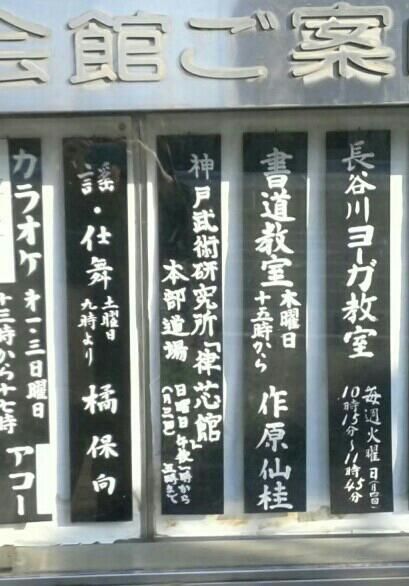 会館ご案
長谷川ヨーガ教室
毎週火曜日(月四回)
10時15分〜11時45分
書道教室
木曜日
十五時から
作原仙桂
神戸武術研究所「律芯館」
本部道場
日曜日 午後一時から
五時まで
謡・仕舞
土曜日
九時より
橘保向
カラオケ
第一・三日曜日
十三時から十七時
アコー